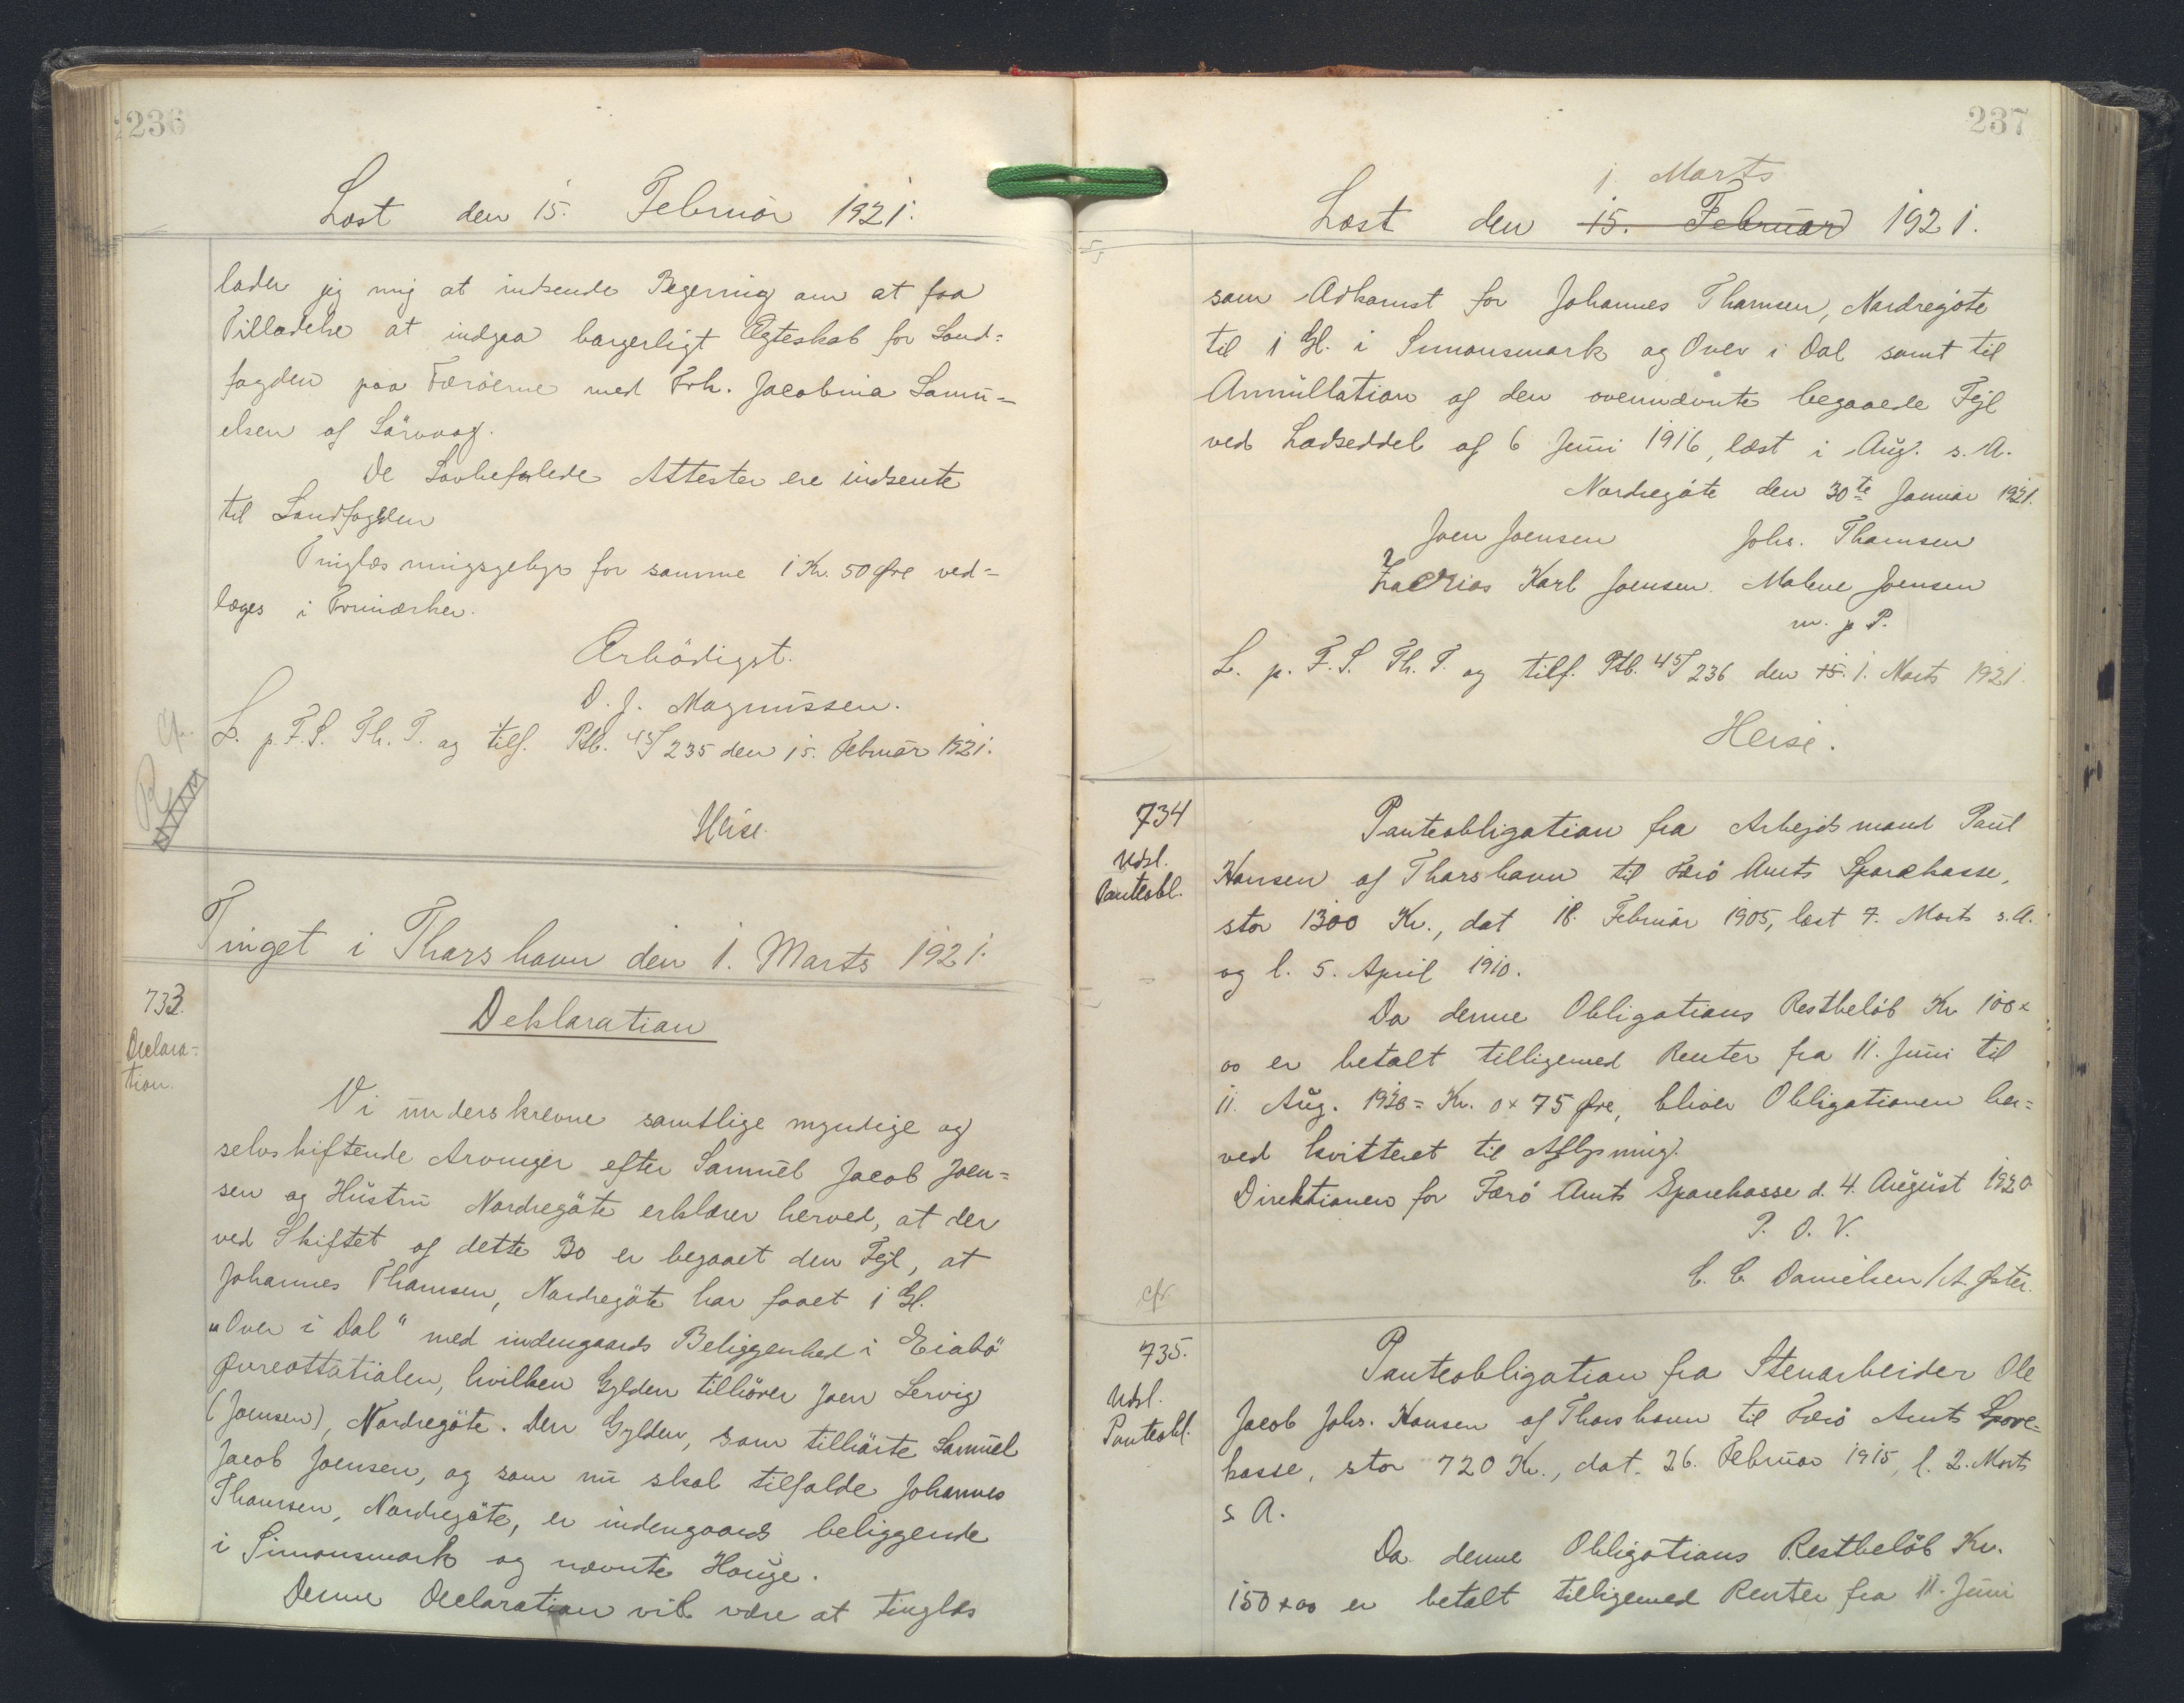 236
Læst den 15. Februar 1921.
lader jeg mig at indsende Begering om at faa
Tilladelse at indgaa borgerligt Ægteskab for Land-
fogden paa Færöerne med Frk. Jacobina Samu-
elsen af Sörvaag.
De Lovbefalede Attester ere indsente
til Landfogden
Tinglæsningsgebyr for samme 1 Kr. 50 Øre ved-
lægges i Frimærker.
Ærbödigst.
D. J. Magnussen.
L. p. F. S. Th. T. og tilf. Ptb. 45/235 den 15. Februar 1921.
Heise.
Tinget i Thorshavn den 1. Marts 1921.
733.
Declara-
tion.
Deklaration
Vi underskrevne samtlige myndige og
selvskiftende Arvinger efter Samuel Jacob Joen-
sen og Hustru Nordregöte erklærer herved, at der
ved Skiftet af dette Bo er begaaet den Fejl, at
Johannes Thomsen, Nordregöte har faaet 1 Gl.
"Over i Dal" med indengaards Beliggenhed i Eiabö
Øvreottatialen, hvilken Gylden tilhörer Joen Servig
(Joensen), Nordregöte. Den Gylden, som tilhörte Samuel
Jacob Joensen, og som nu skal tilfalde Johannes
Thomsen, Nordregöte, er indengaards beliggende
i Simonsmark og nævnte Hauge.
Denne Declaration vil være at tinglæs
237
1. Marts
Læst den 15. Februar 1921.
som Adkomst for Johannes Thomsen, Nordregöte
til 1 Gl. i Simonsmark og Over i Dal samt til
Annullation af den ovennævnte begaaede Fejl
ved Lodseddel af 6 Juni 1916, læst i Aug. s. A.
Nordregöte den 30te Januar 1921.
Joen Joensen Johs. Thomsen
Zacrias Karl Joensen. Malene Joensen
m. p P.
L. p. F. S. Th. T. og tilf. Ptb. 45/236 den 15. 1. Marts 1921.
Heise.
734
Udsl.
Panteobl.
Panteobligation fra Arbejdsmand Paul
Hansen af Thorshavn til Færö Amts Sparekasse,
stor 1300 Kr., dat 18. Februar 1905, læst 7. Marts s. A.
og l. 5. April 1910.
Da denne Obligations Restbelöb Kr 100×
00 er betalt tilligemed Renter fra 11. Juni til
11. Aug. 1920 = Kr. 0×75 Øre, bliver Obligationen her-
ved kvitteret til Aflysning.
Direktionen for Færö Amts Sparekasse d. 4. August 1920
P. D. V.
C. C. Danielsen / A. Øster.
cfr
735.
Udsl.
Panteobl.
Panteobligation fra Stenarbeider Ole
Jacob Johs. Hansen af Thorshavn til Færö Amts Spare-
kasse, stor 720 Kr., dat. 26. Februar 1915, l. 2. Marts
s A.
Da denne Obligations Restbelöb Kr.
150×00 er betalt tilligemed Renter fra 11. Juni